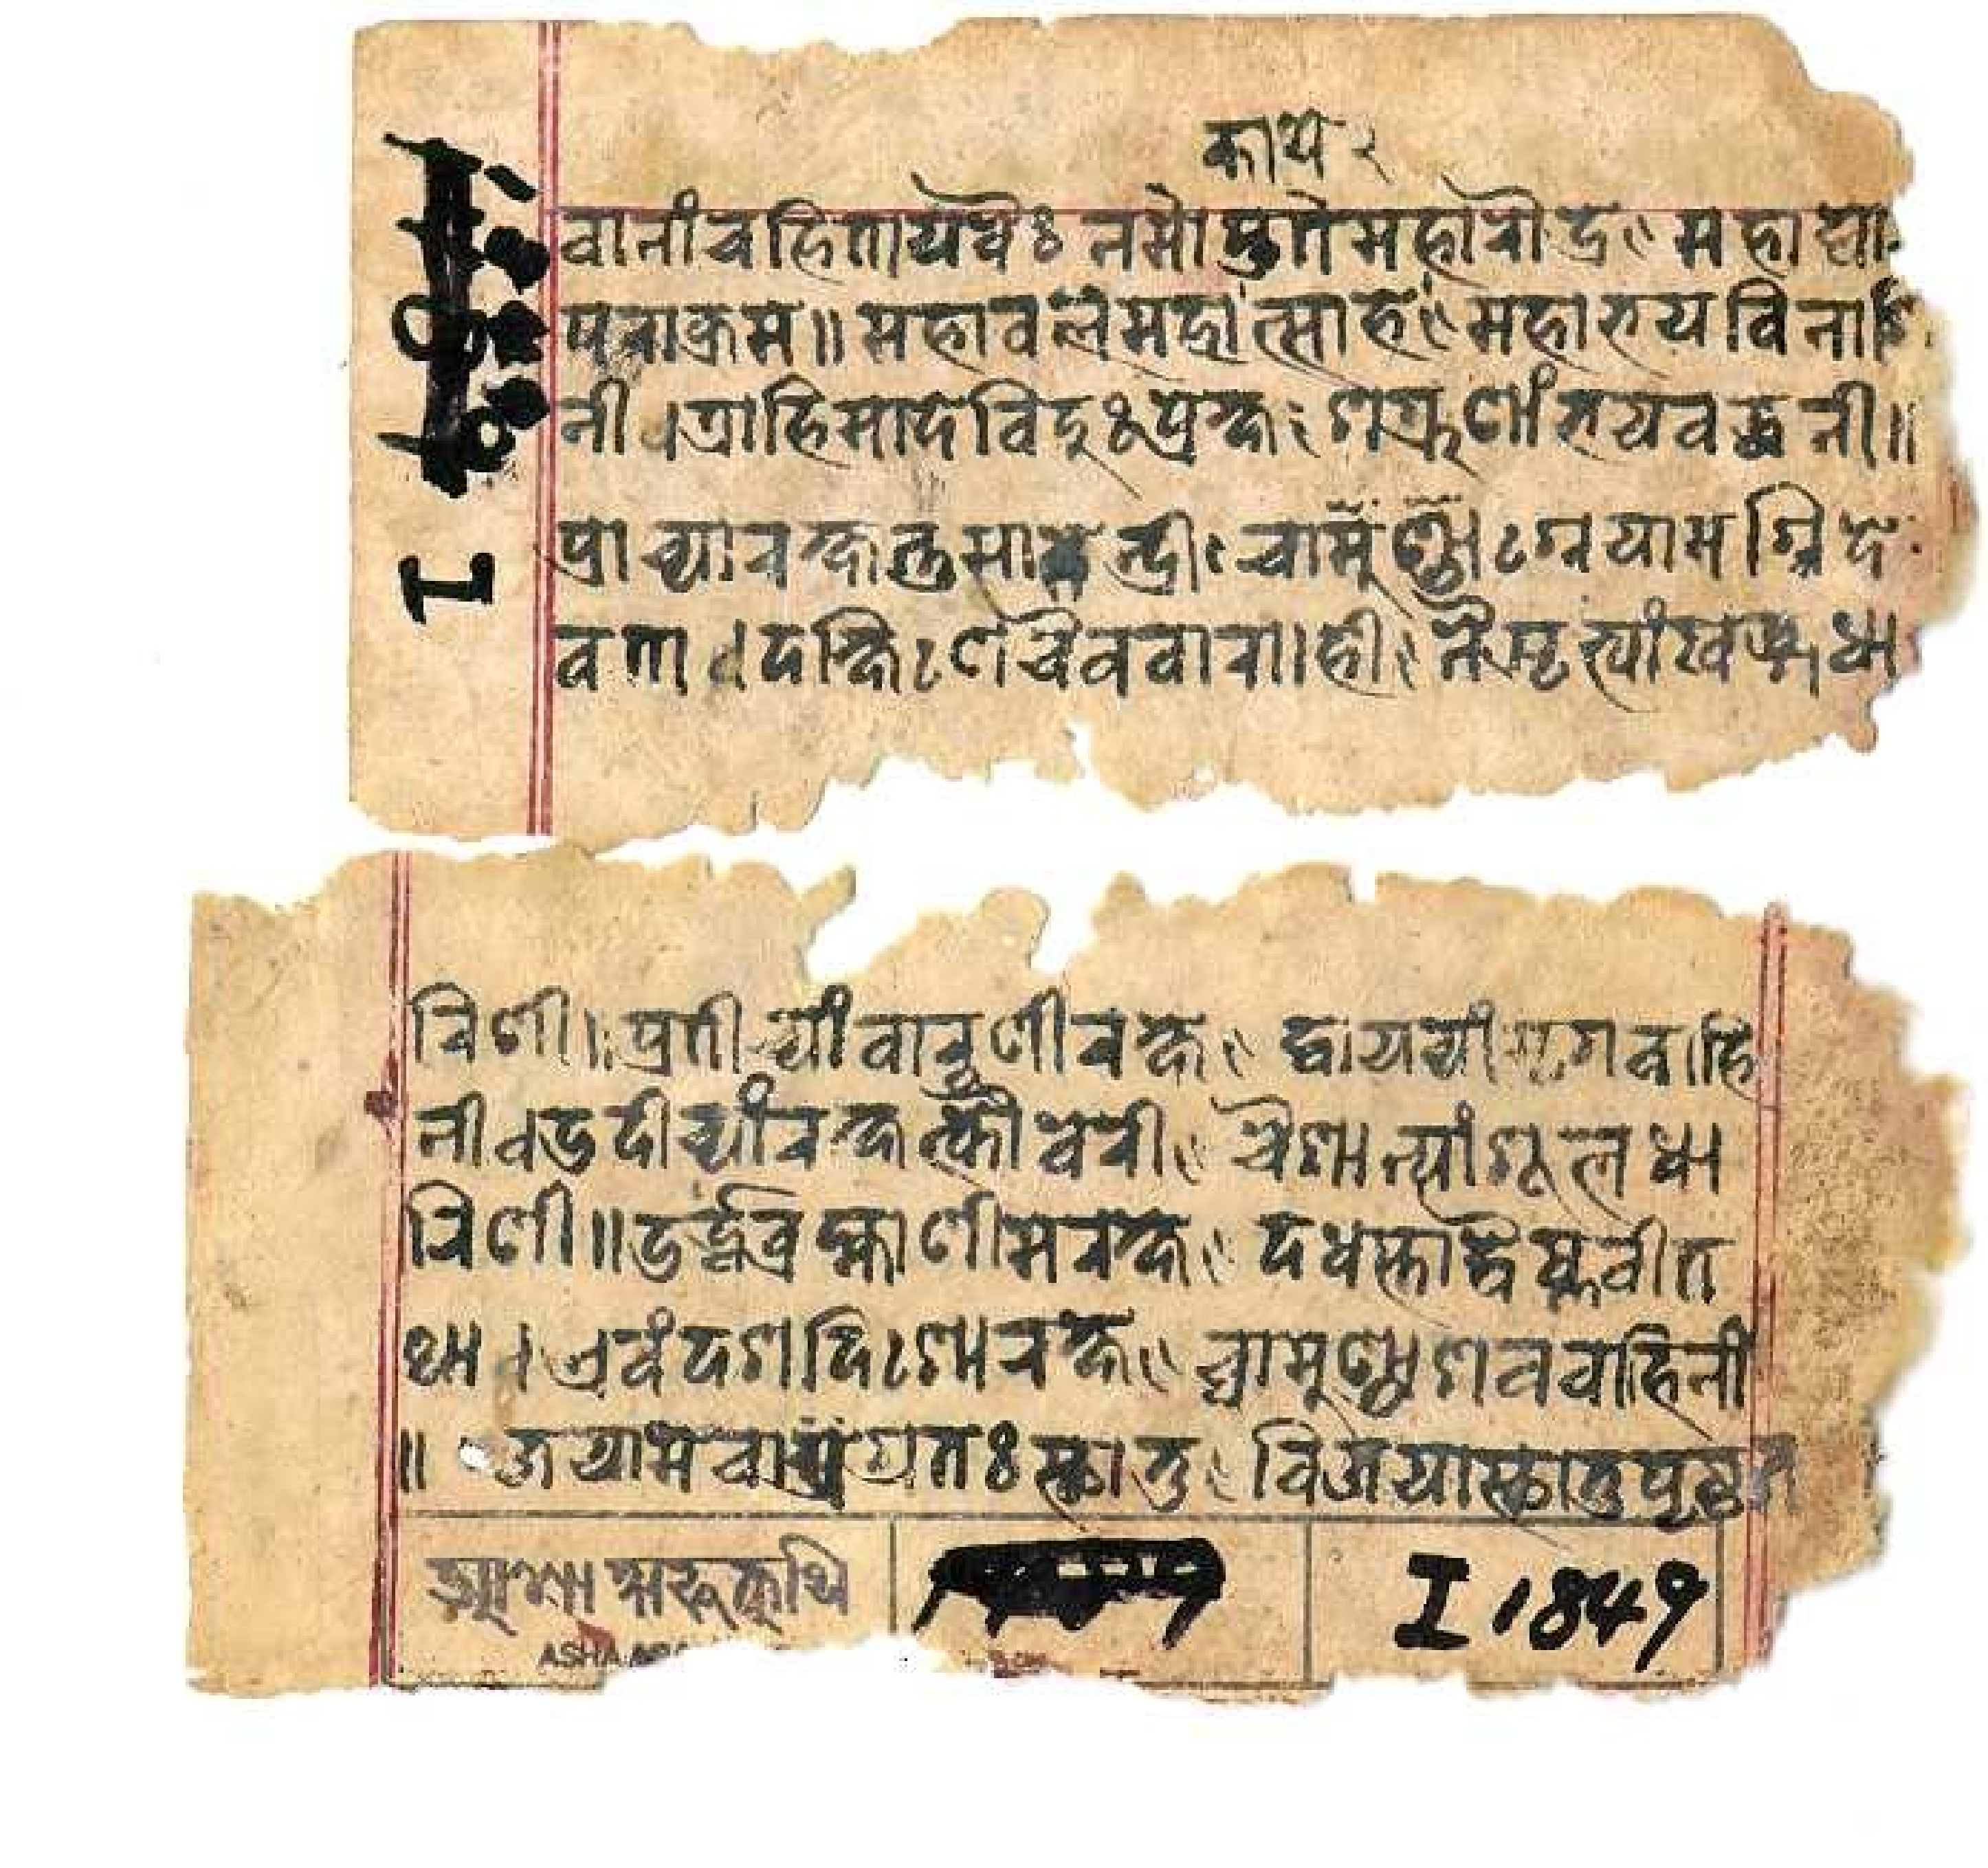 काथ २
वानांचहितायवैः नमोस्तुतेमहारौद्र महाघा
पराक्रम॥ महावलेमहोत्साह महाभयविनाशि
नी।त्राहिमांदेविदुःप्रेक्ष शत्रूणांभयवर्द्धनी॥
प्राच्यांरक्षतुमा न्द्री अग्नेयामग्निदे
वता। दक्षिणेचैववाराही नैरृत्यांखड्गधा
रिणी॥प्रतीच्यांवारुणीरक्षे द्वायव्यांमृगवाहि
नी। उदीच्यांरक्षकौवेरी ऐशान्यांशूलधा
रिणी॥उर्द्धंव्रह्माणीमेरक्षे दधस्ताद्वैष्णवीत
था। एवंदशदिशोरक्षे च्चामुण्डाशववाहिनी
॥ जयामेचाग्रतःस्थातु विजयास्थातुपृष्ठत
आशा सफूकुथि
ASHA
I 1849